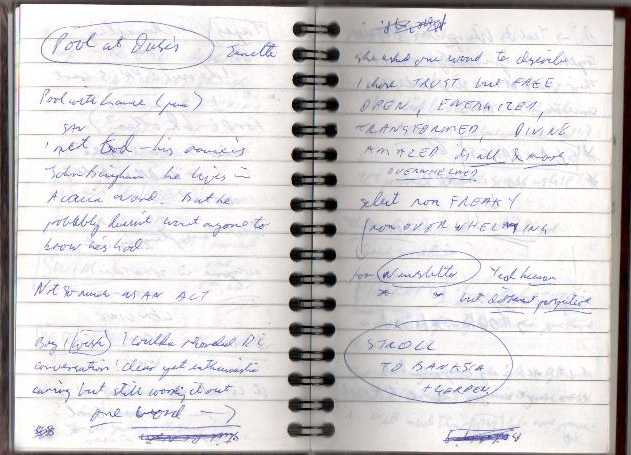 Pool at
Janette
Pool with (pm)
SAW
I met God – his name is
John Bingham he lives in
Acacia Road. But he
probably doesn't want anyone to
know he's God.
Not so much as AN ACT
Boy I wish I could a recorded
conversation clear yet enthusiastic
caring but still working it out
one word →
she asked one word to describe
I chose TRUST but FREE
OPEN, ENERGIZED,
TRANSFORMED, DIVINE
AMAZED is all & more
OVERWHELMED
select non FREAKY
non OVERWHELMING
Newsletter Yeah
but different perspective
STROLL
TO BANKSIA
+ GARDEN